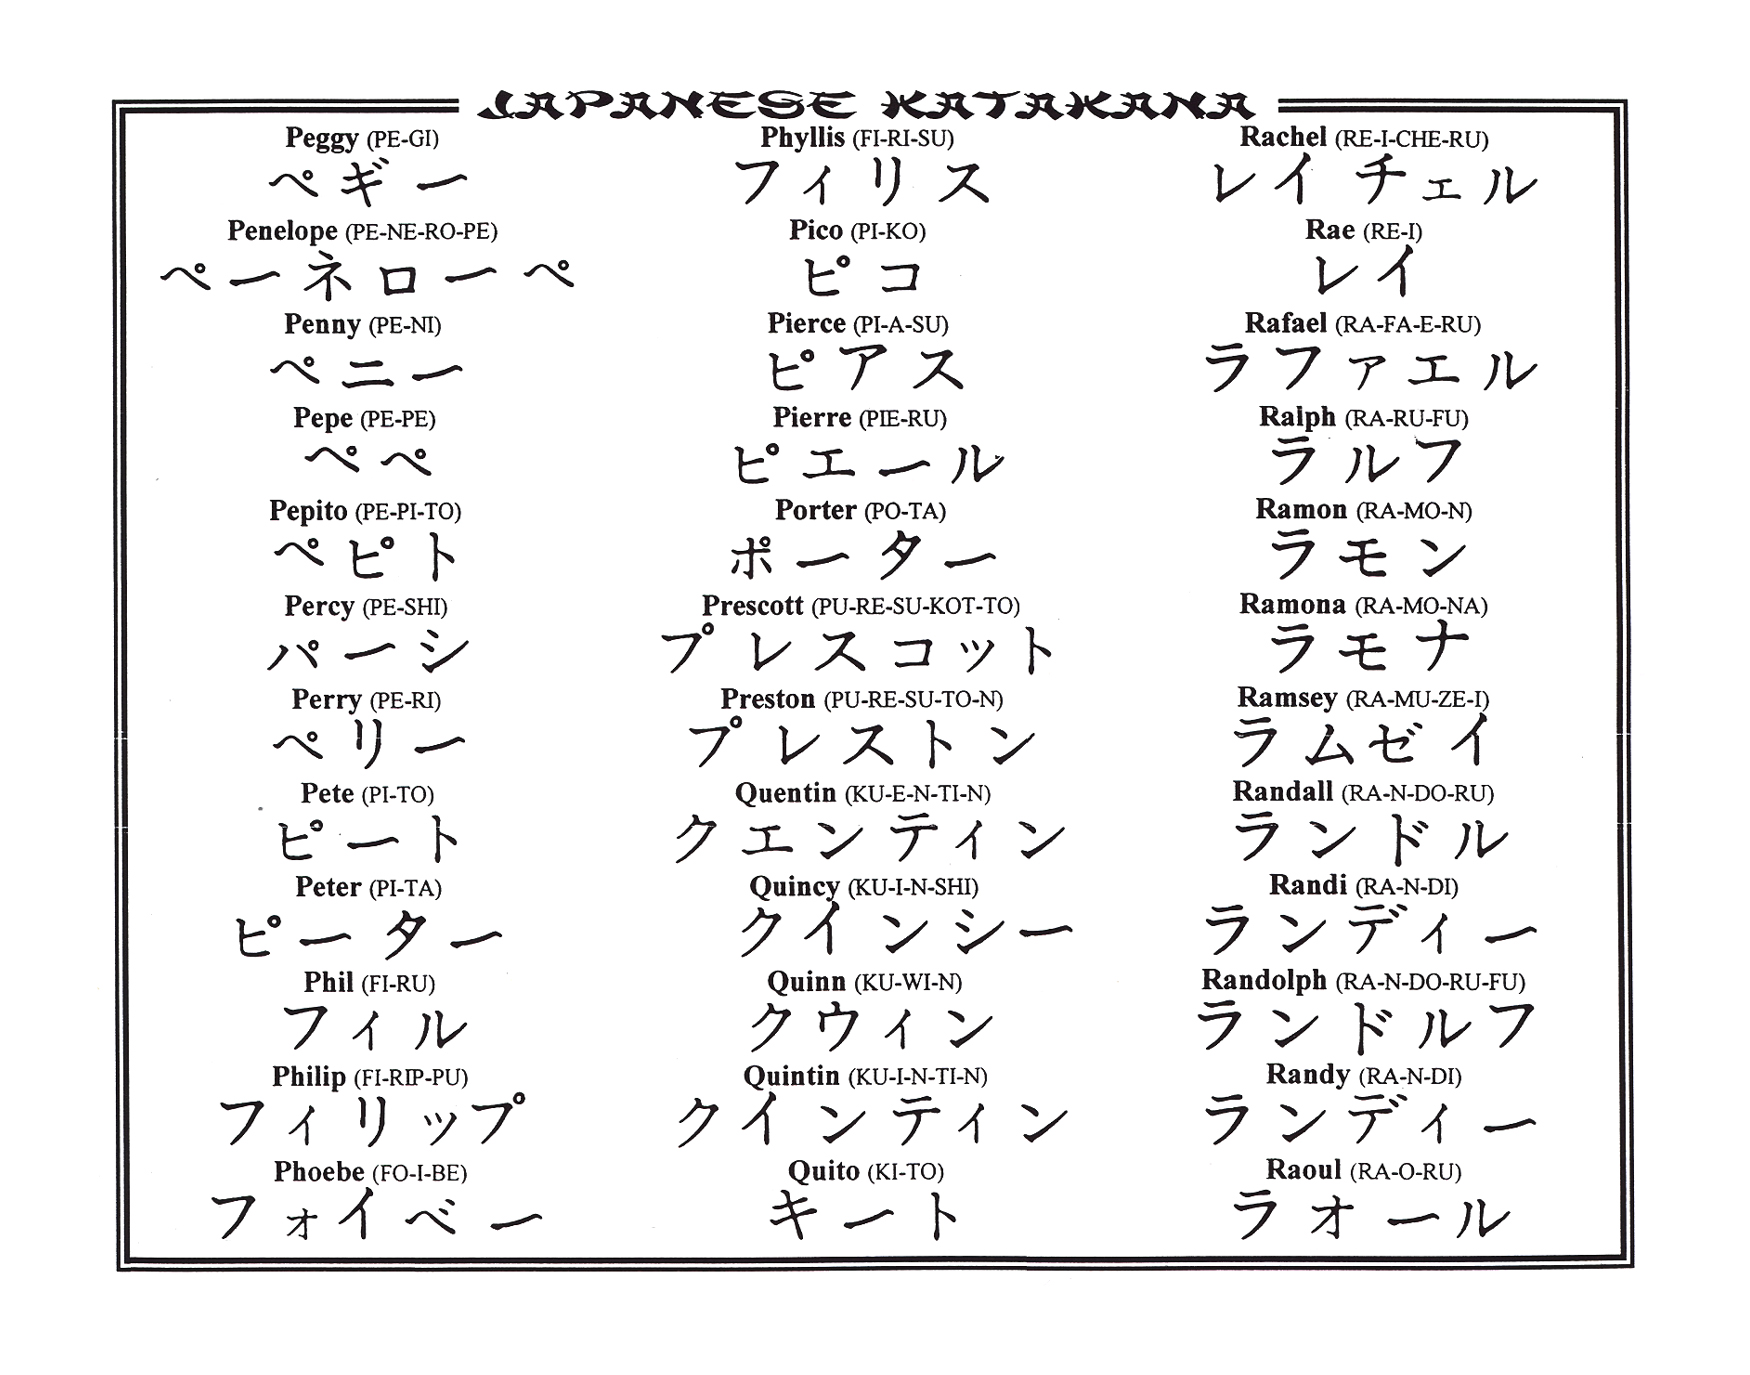 JAPANESE KATAKANA
Peggy (PE-GI)
ペギー
Penelope (PE-NE-RO-PE)
ペーネローペ
Penny (PE-NI)
ペニー
Pepe (PE-PE)
ペペ
Pepito (PE-PI-TO)
ペピト
Percy (PE-SHI)
パーシ
Perry (PE-RI)
ペリー
Pete (PI-TO)
ピート
Peter (PI-TA)
ピーター
Phil (FI-RU)
フィル
Philip (FI-RIP-PU)
フィリップ
Phoebe (FO-I-BE)
フォイベー
Phyllis (FI-RI-SU)
フィリス
Pico (PI-KO)
ピコ
Pierce (PI-A-SU)
ピアス
Pierre (PIE-RU)
ピエール
Porter (PO-TA)
ポーター
Prescott (PU-RE-SU-KOT-TO)
プレスコット
Preston (PU-RE-SU-TO-N)
プレストン
Quentin (KU-E-N-TI-N)
クエンティン
Quincy (KU-I-N-SHI)
クインシー
Quinn (KU-WI-N)
クウィン
Quintin (KU-I-N-TI-N)
クインティン
Quito (KI-TO)
キート
Rachel (RE-I-CHE-RU)
レイチェル
Rae (RE-I)
レイ
Rafael (RA-FA-E-RU)
ラファエル
Ralph (RA-RU-FU)
ラルフ
Ramon (RA-MO-N)
ラモン
Ramona (RA-MO-NA)
ラモナ
Ramsey (RA-MU-ZE-I)
ラムゼイ
Randall (RA-N-DO-RU)
ランドル
Randi (RA-N-DI)
ランディー
Randolph (RA-N-DO-RU-FU)
ランドルフ
Randy (RA-N-DI)
ランディー
Raoul (RA-O-RU)
ラオール